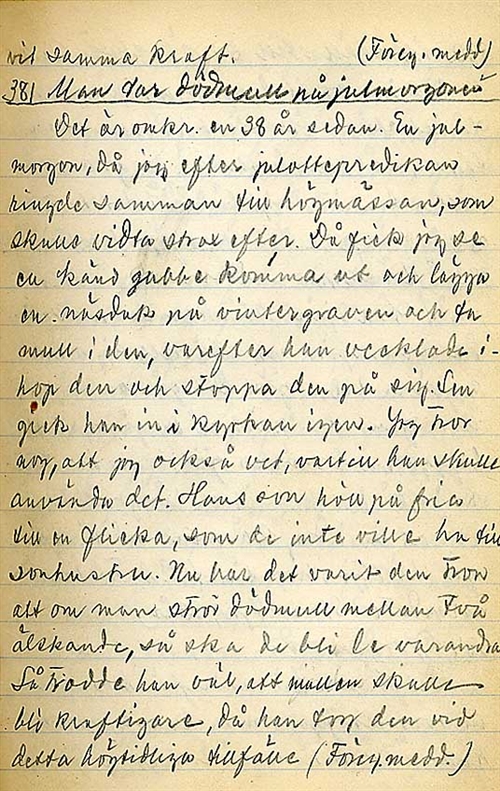 vit samma kraft. (Föreg. medd)
381 Man tar dödmull på julmorgonen
Det är omkr. en 38 år sedan. En jul-
morgon, då jag efter julottepredikan
ringde samman till högmässan, som
skulle vidta strax efter. Då fick jag se
en känd gubbe komma ut och lägga
en näsduk på vintergraven och ta
mull i den, varefter han vecklade i-
hop den och stoppa den på sig. Sen
gick han in i kyrkan igen. Jag tror
nog, att jag också vet, vartill han skulle
använda det. Hans son höll på fria
till en flicka, som de inte ville ha till
sonhustru. Nu har det varit den tron
att om man strör dödmull mellan två
älskande, så ska de bli le varandra
Så trodde han väl, att mullen skulle
bli kraftigare, då han tog den vid
detta högtidliga tillfälle (Föreg. medd.)